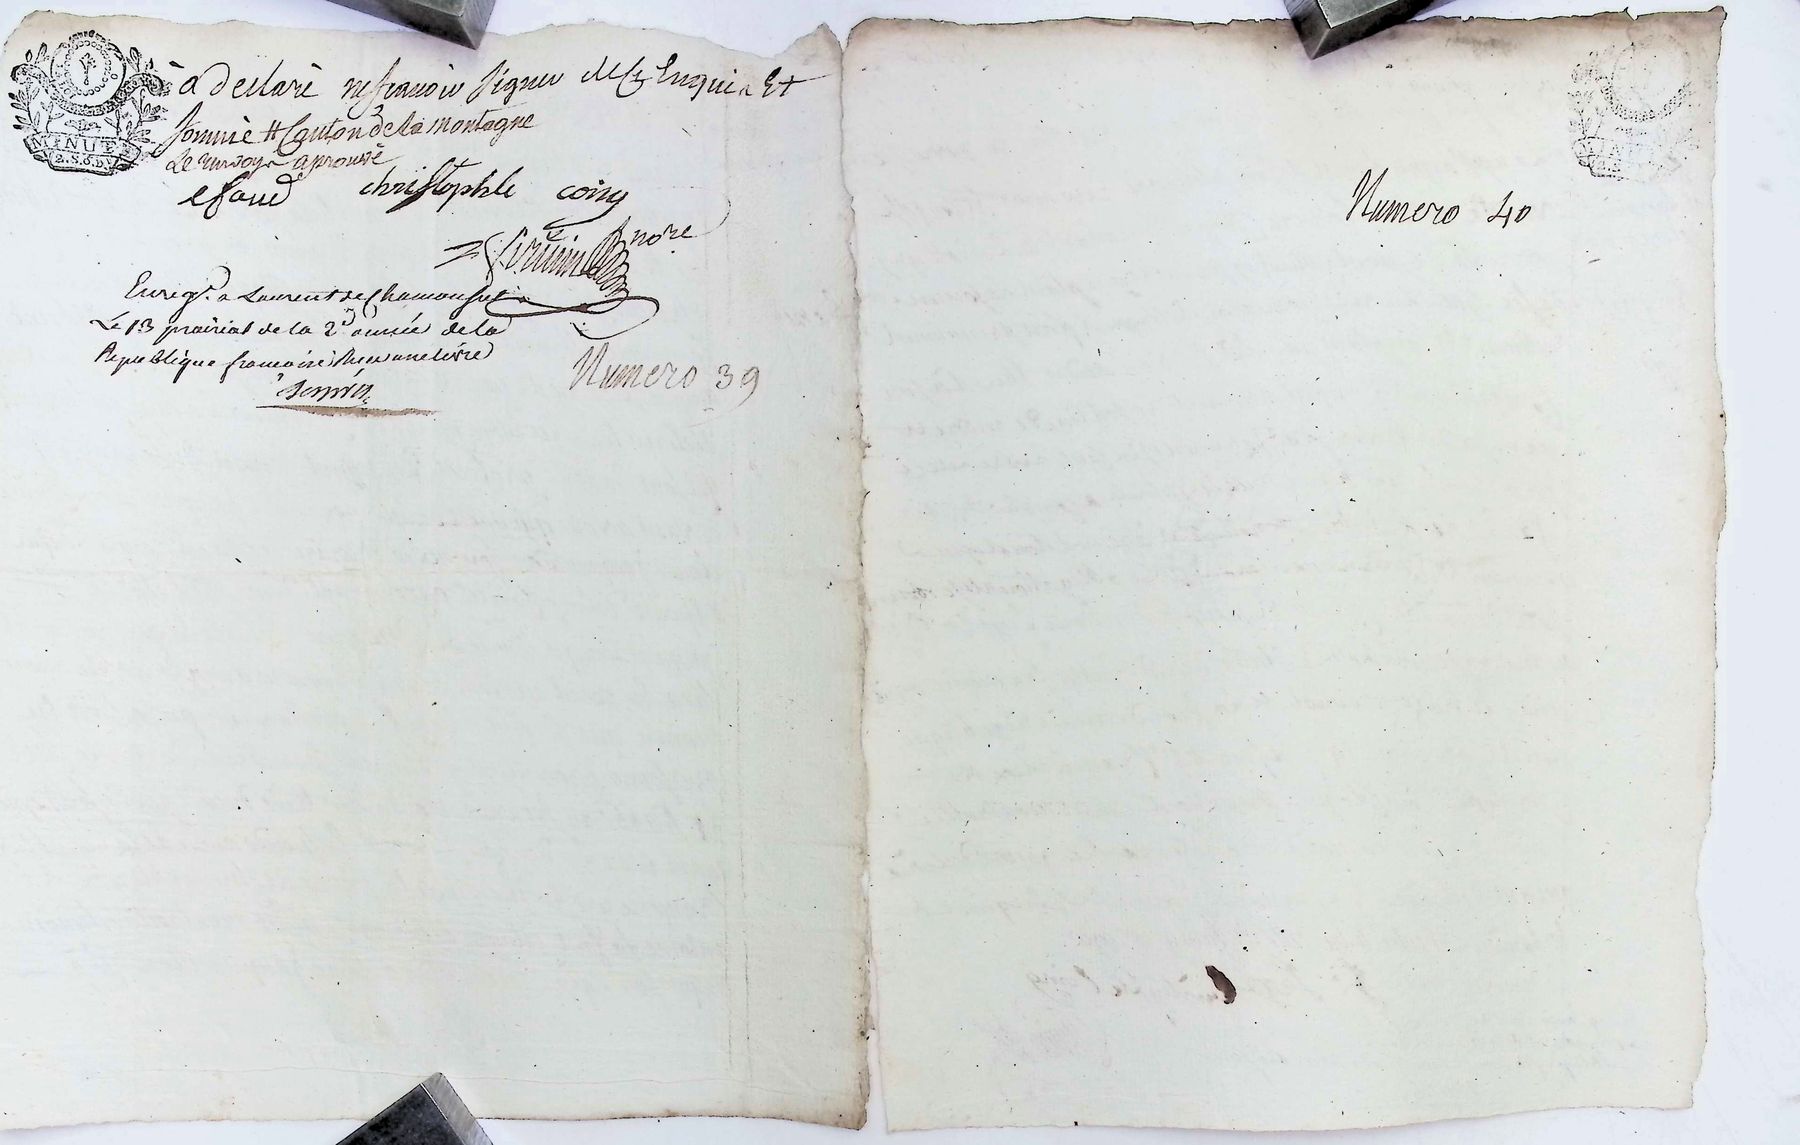 MINUTE
2. S. 6. D.
à declaré ne scavoir signer de ce Enquis Et
sommé # Canton de la montagne
Le renvoye aprouvé
christophle coing
nore
Enregr. a Laurent de Chamousset
Le 13 prairial de la 2e année de la
Republique francoise Recu une livre
Numero 39
Numero 40